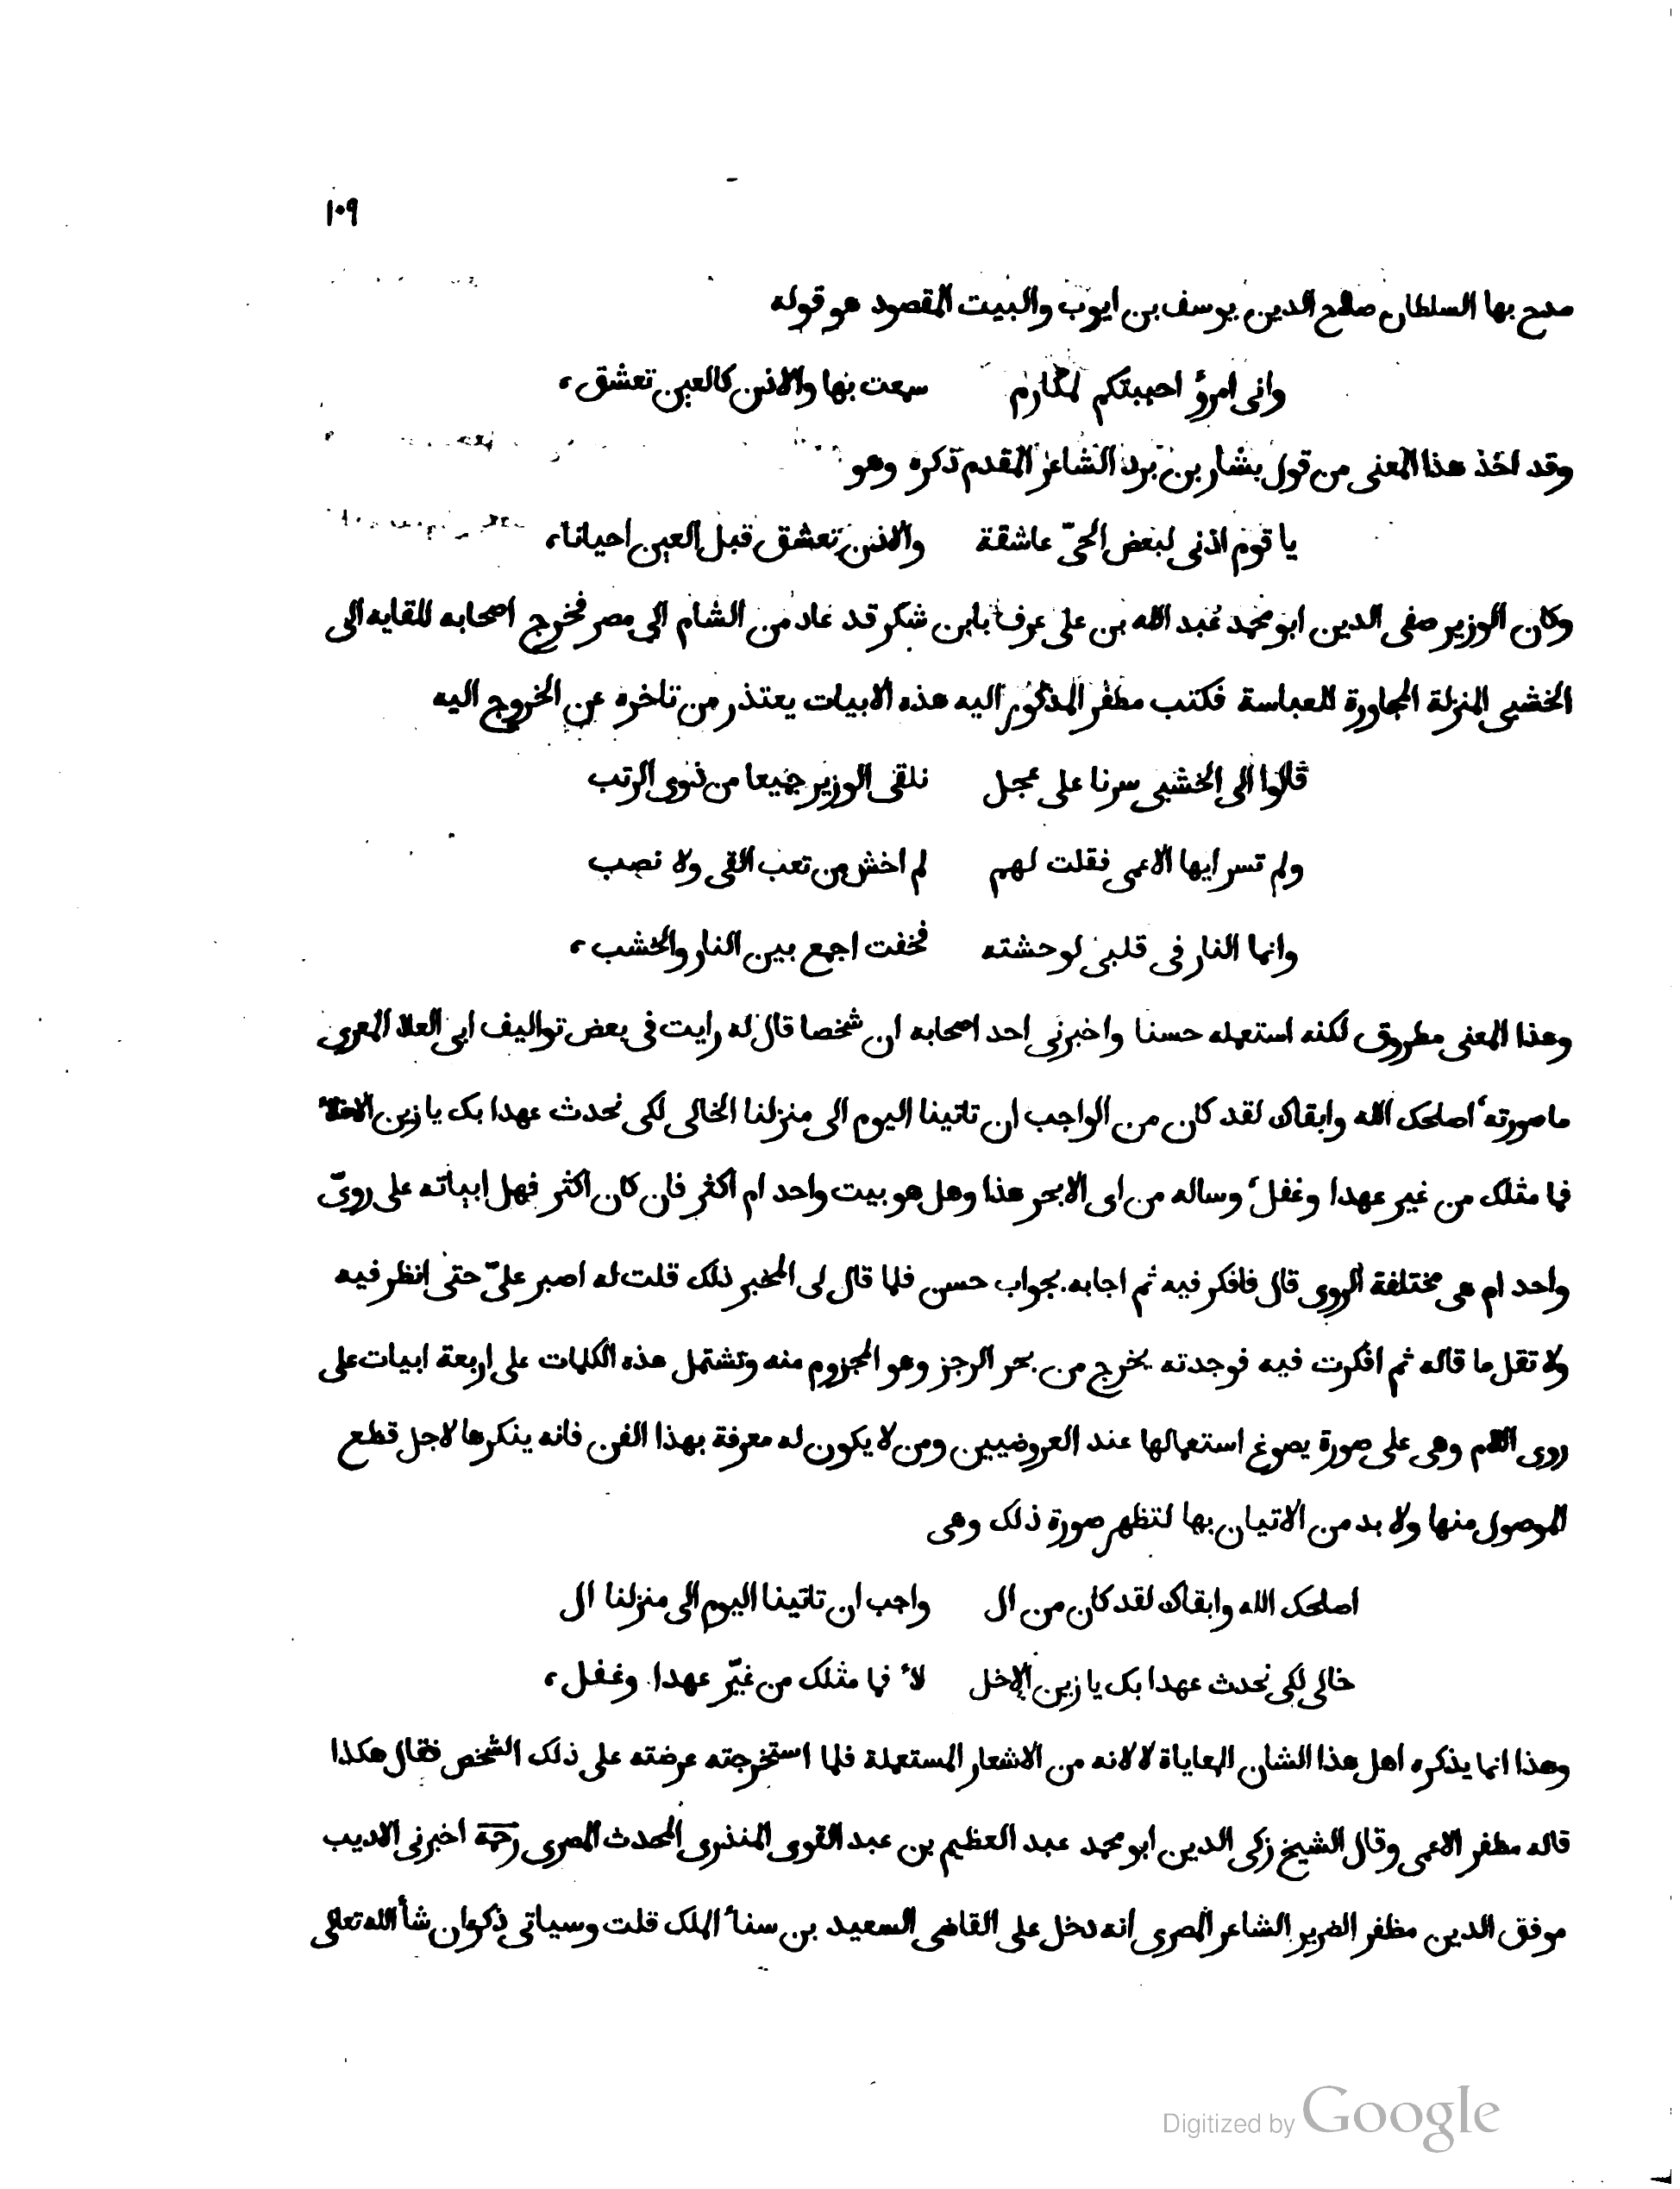 ١٠٩
مدح بها السلطان صلاح الدين يوسف بن ايوب والبيت المقصود هو قوله
وانى امرؤ احببتكم لمكارم سمعت بها والاذن كالعين تعشق،
وقد اخذ هذا المعنى من قول بشار بن برد الشاعر المقدم ذكره وهو
يا قوم اذنى لبعض الحىّ عاشقة والاذن تعشق قبل العين احيانا،
وكان الوزير صفى الدين ابو محمد عبد الله بن على عرف بابن شكر قد عاد من الشام الى مصر فخرج اصحابه للقايه الى
الخشبى المنزلة المجاورة للعباسة فكتب مظفر المذكور اليه هذه الابيات يعتذر من تاخره عن الخروج اليه
قالوا الى الخشبى سرنا على عجل نلقى الوزير جميعا من ذوى الرتب
ولم تسر ايها الاعمى فقلت لهم لم اخش من تعب القى ولا نصب
وانما النار فى قلبى لوحشته فخفت اجمع بين النار والخشب،
وهذا المعنى مطروق لكنه استعمله حسنا واخبرنى احد اصحابه ان شخصا قال له رايت فى بعض تواليف ابى العلا المعرى
ما صورته، اصلحك الله وابقاك لقد كان من الواجب ان تاتينا اليوم الى منزلنا الخالى لكى نحدث عهدا بك يا زين الاخلاّ
فما مثلك من غير عهدا وغفل، وساله من اى الابحر هذا وهل هو بيت واحد ام اكثر فان كان اكثر فهل ابياته على روىّ
واحد ام هى مختلفة الروى قال فافكر فيه ثم اجابه بجواب حسن فلما قال لى المخبر ذلك قلت له اصبر علىّ حتى انظر فيه
ولا تقل ما قاله ثم افكرت فيه فوجدته يخرج من بحر الرجز وهو المجزوم منه وتشتمل هذه الكلمات على اربعة ابيات على
روى اللام وهى على صورة يصوغ استعمالها عند العروضيين ومن لا يكون له معرفة بهذا الفن فانه ينكرها لاجل قطع
الموصول منها ولا بد من الاتيان بها لتظهر صورة ذلك وهى
اصلحك الله وابقاك لقد كان من ال واجب ان تاتينا اليوم الى منزلنا ال
خالى لكى نحدث عهدا بك يا زين الاخل لاّ فما مثلك من غيّر عهدا وغفل،
وهذا انما يذكره اهل هذا الشان المعاياة لا لانه من الاشعار المستعملة فلما استخرجته عرضته على ذلك الشخص فقال هكذا
قاله مظفر الاعمى وقال الشيخ زكى الدين ابو محمد عبد العظيم بن عبد القوى المنذرى المحدث المصرى رحمه اخبرنى الاديب
موفق الدين مظفر الضرير الشاعر المصرى انه دخل على القاضى السعيد بن سناء الملك قلت وسياتى ذكره ان شاء الله تعالى
Digitized by Google